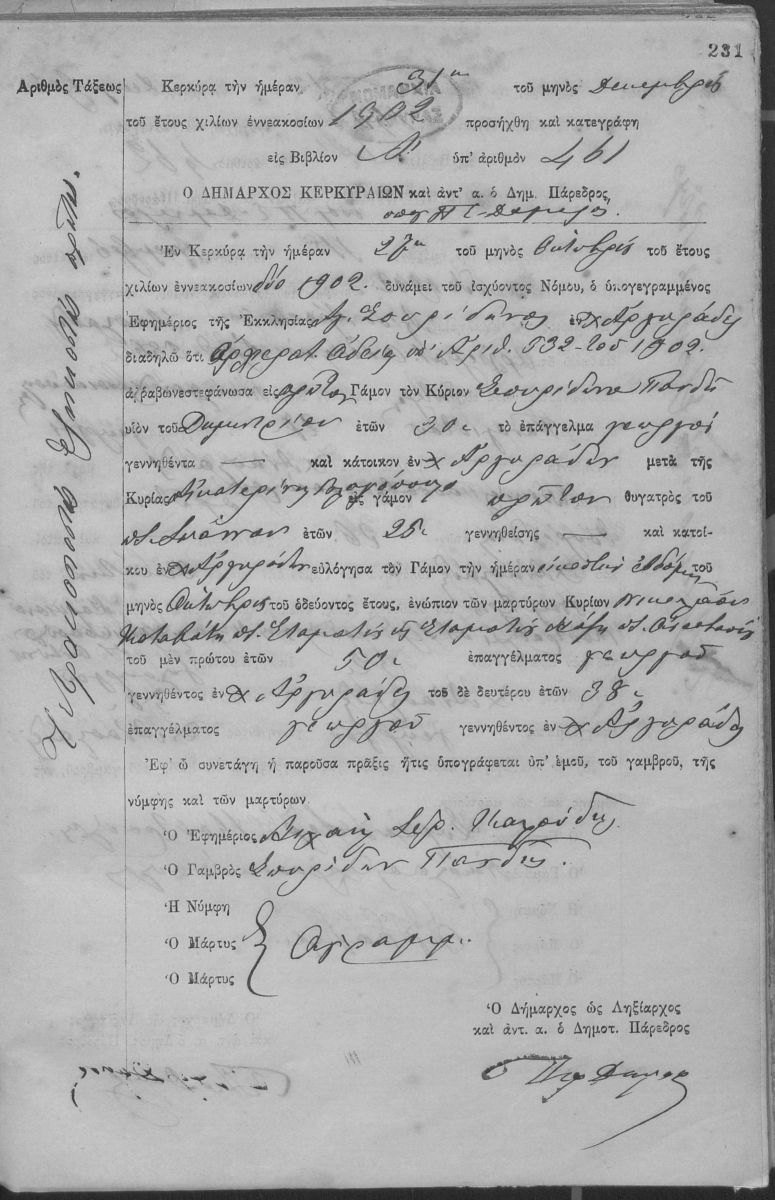 231
Ἀριθμὸς Τάξεως
Κερκύρᾳ τὴν ἡμέραν 31ην τοῦ μηνὸς Δεκεμβρίου
τοῦ ἔτους χιλίων ἐννεακοσίων 1902 προσήχθη καὶ κατεγράφη
εἰς Βιβλίον Α' ὑπ' ἀριθμὸν 461
Ὁ ΔΗΜΑΡΧΟΣ ΚΕΡΚΥΡΑΙΩΝ καὶ ἀντ' α. ὁ Δημ. Πάρεδρος,
Ἐν Κερκύρᾳ τὴν ἡμέραν 27ην τοῦ μηνὸς Ὀκτωβρίου τοῦ ἔτους
χιλίων ἐννεακοσίων δύο 1902. δυνάμει τοῦ ἰσχύοντος Νόμου, ὁ ὑπογεγραμμένος
Ἐφημέριος τῆς Ἐκκλησίας Ἁγ. Σπυρίδωνος ἐν χ Ἀργυράδες
διαδηλῶ ὅτι Ἀρχιερατ. Ἀδείᾳ ὑπ' Ἀριθ. 532 τοῦ 1902.
ἀῤῥαβωνεστεφάνωσα εἰς πρῶτον Γάμον τὸν Κύριον Σπυρίδωνα Πανδῆ
υἱὸν τοῦ Δημητρίου ἐτῶν 30 τὸ ἐπάγγελμα γεωργοῦ
γεννηθέντα — καὶ κάτοικον ἐν χ Ἀργυράδων μετὰ τῆς
Κυρίας Αἰκατερίνης εἰς γάμον πρῶτον θυγατρὸς τοῦ
ποτ. Ἰωάννου ἐτῶν 25 γεννηθείσης — καὶ κατοί-
κου ἐν χ Ἀργυράδων εὐλόγησα τὸν Γάμον τὴν ἡμέραν εἰκοστὴν ἑβδόμην τοῦ
μηνὸς Ὀκτωβρίου τοῦ ὁδεύοντος ἔτους, ἐνώπιον τῶν μαρτύρων Κυρίων Νικολάου
Καταβάτη ποτ. Σταματίου καὶ Σταματίου ποτ. Ἀναστασίου
τοῦ μὲν πρώτου ἐτῶν 50 ἐπαγγέλματος γεωργοῦ
γεννηθέντος ἐν χ Ἀργυράδες τοῦ δὲ δευτέρου ἐτῶν 38
ἐπαγγέλματος γεωργοῦ γεννηθέντος ἐν χ Ἀργυράδες
Ἐφ' ᾧ συνετάγη ἡ παροῦσα πρᾶξις ἥτις ὑπογράφεται ὑπ' ἐμοῦ, τοῦ γαμβροῦ, τῆς
νύμφης καὶ τῶν μαρτύρων.
Ὁ Ἐφημέριος Μιχαὴλ
Ὁ Γαμβρὸς Σπυρίδων Πανδῆς.
Ἡ Νύμφη
Ὁ Μάρτυς Ἀγράμμ.
Ὁ Μάρτυς
Ὁ Δήμαρχος ὡς Ληξίαρχος
καὶ ἀντ. α. ὁ Δημοτ. Πάρεδρος